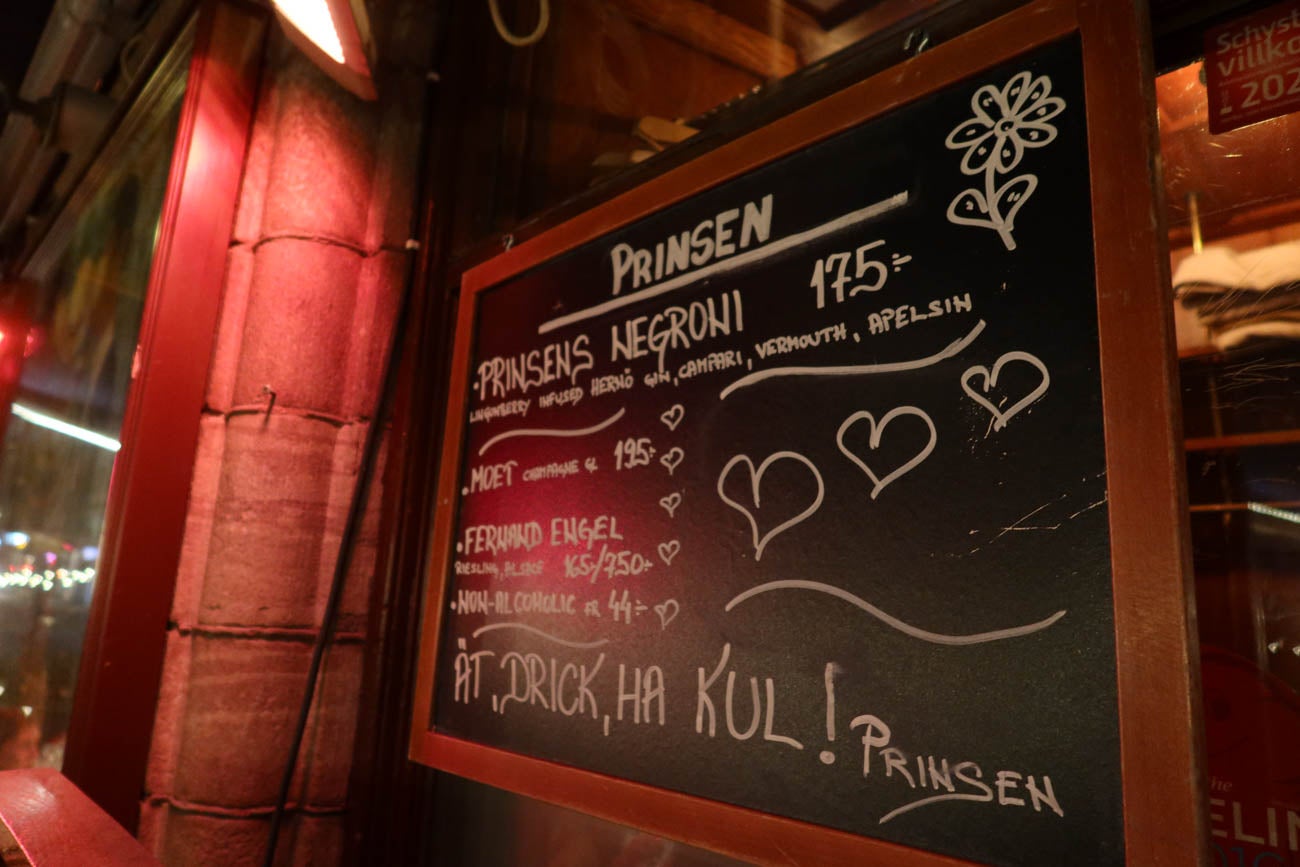 PRINSEN
·PRINSENS NEGRONI 175:-
LINGONBERRY INFUSED HERNÖ GIN, CAMPARI, VERMOUTH, APELSIN
·MOET CHAMPAGNE GL 195:-
·FERNAND ENGEL
RIESLING, ALSACE 165/750:-
·NON-ALCOHOLIC FR 44:-
ÄT, DRICK, HA KUL!
PRINSEN
Schyst
villko
202
the
ELIN